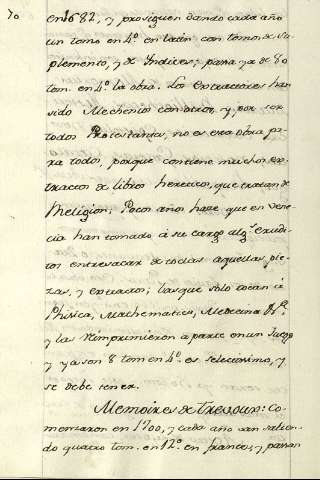 70
en 1682, y prosiguen dando cada año
un tomo en 4º. en latin con tomos de Su-
plemento, y de Indices; passa ya de 80
tom. en 4º. la obra. Los extractores han
sido Mechenios con otros, y por ser
todos Protestantes, no es esta obra pa-
ra todos, porque contiene muchos ex-
tractos de libros hereticos, que tratan de
Religion; Pocos años hace que en Vene-
cia han tomado á su cargo algs. erudi-
tos entresacar de todas aquellas pie-
zas, y extractos; las que solo tocan á
Phisica, Mathematica, Medicina &ª.
y las reimprimieron aparte en un Juego
y ya son 8 tom en 4º. es selectissimo, y
se debe tener.
Memoires de Trevoux: Co-
menzaron en 1700, y cada año van salien-
do quatro tom. en 12º. en frances, y passan